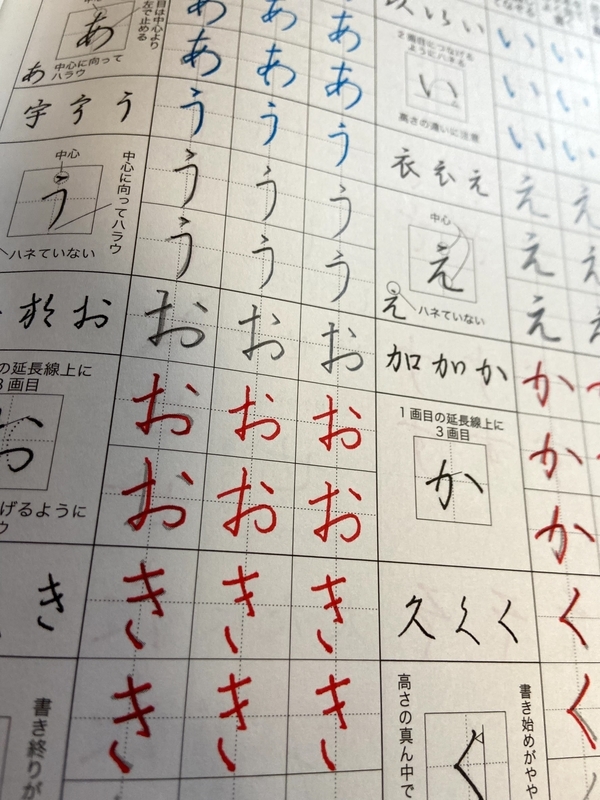 あ あ あ
目は中心より
左で止める
あ
あ あ あ
あ
中心に向って
ハラウ
宇 う
う う う
中心
う
中心に向ってハラウ
ハネていない
う う う
う う う
お
お お お
の延長線上に
3画目
お
お お お
げるように
ウ
お お お
き
き き き
き き き
書き終りが
い い
2画目につなげる
ようにハネる
い
高さの違いに注意
い い
い い
衣 え
え え
中心
え
え
ハネていない
え え
え え
加 か か
か
1画目の延長線上に
3画目
か
か
か
久 く く
く
高さの真ん中で
く
書き始めがやや
く